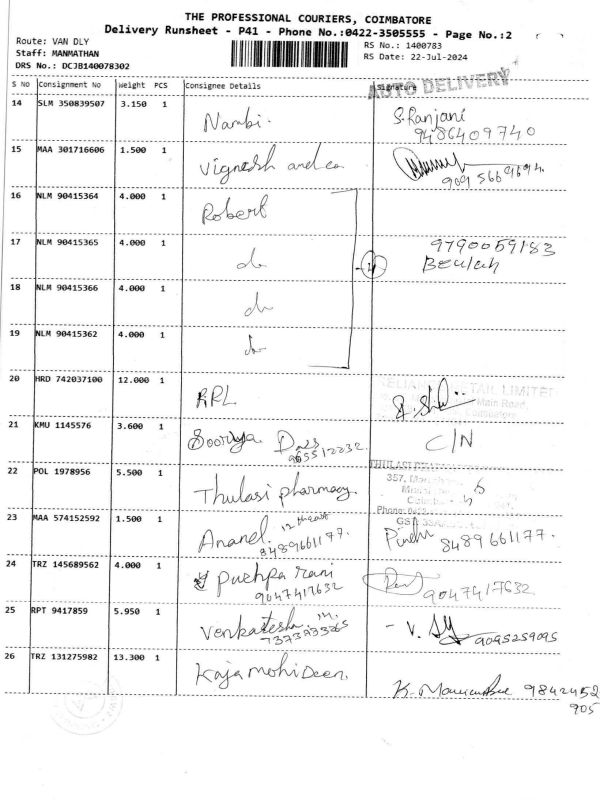 THE PROFESSIONAL COURIERS, COIMBATORE
Delivery Runsheet - P41 - Phone No.:0422-3505555 - Page No.:2
Route: VAN DLY
Staff: MANMATHAN
DRS No.: DCJB140078302
RS No.: 1400783
RS Date: 22-Jul-2024
AUTO DELIVERY
S No Consignment No Weight PCS Consignee Details Signature
14 SLM 350839507 3.150 1 Nambi. S.Ranjani
9486409740
15 MAA 301716606 1.500 1 Vignesh and co
16 NLM 90415364 4.000 1 Robert
17 NLM 90415365 4.000 1 do 9790059183
Beulah
18 NLM 90415366 4.000 1 do
19 NLM 90415362 4.000 1 do
20 HRD 742037100 12.000 1 RPL
RELIANCE RETAIL LIMITED
Main Road
21 KMU 1145576 3.600 1 Soorya Dass C/N
9655512232
22 POL 1978956 5.500 1 Thulasi pharmacy
THULASI PHARMACY
357,
Phone: 0422
GST
23 MAA 574152592 1.500 1 Anand
8489661177. 8489661177.
24 TRZ 145689562 4.000 1 Puchpa rani
9047417632 9047417632
25 RPT 9417859 5.950 1 Venkatesha
9095259095
26 TRZ 131275982 13.300 1 Kaja mohi Deen.
9842452
905